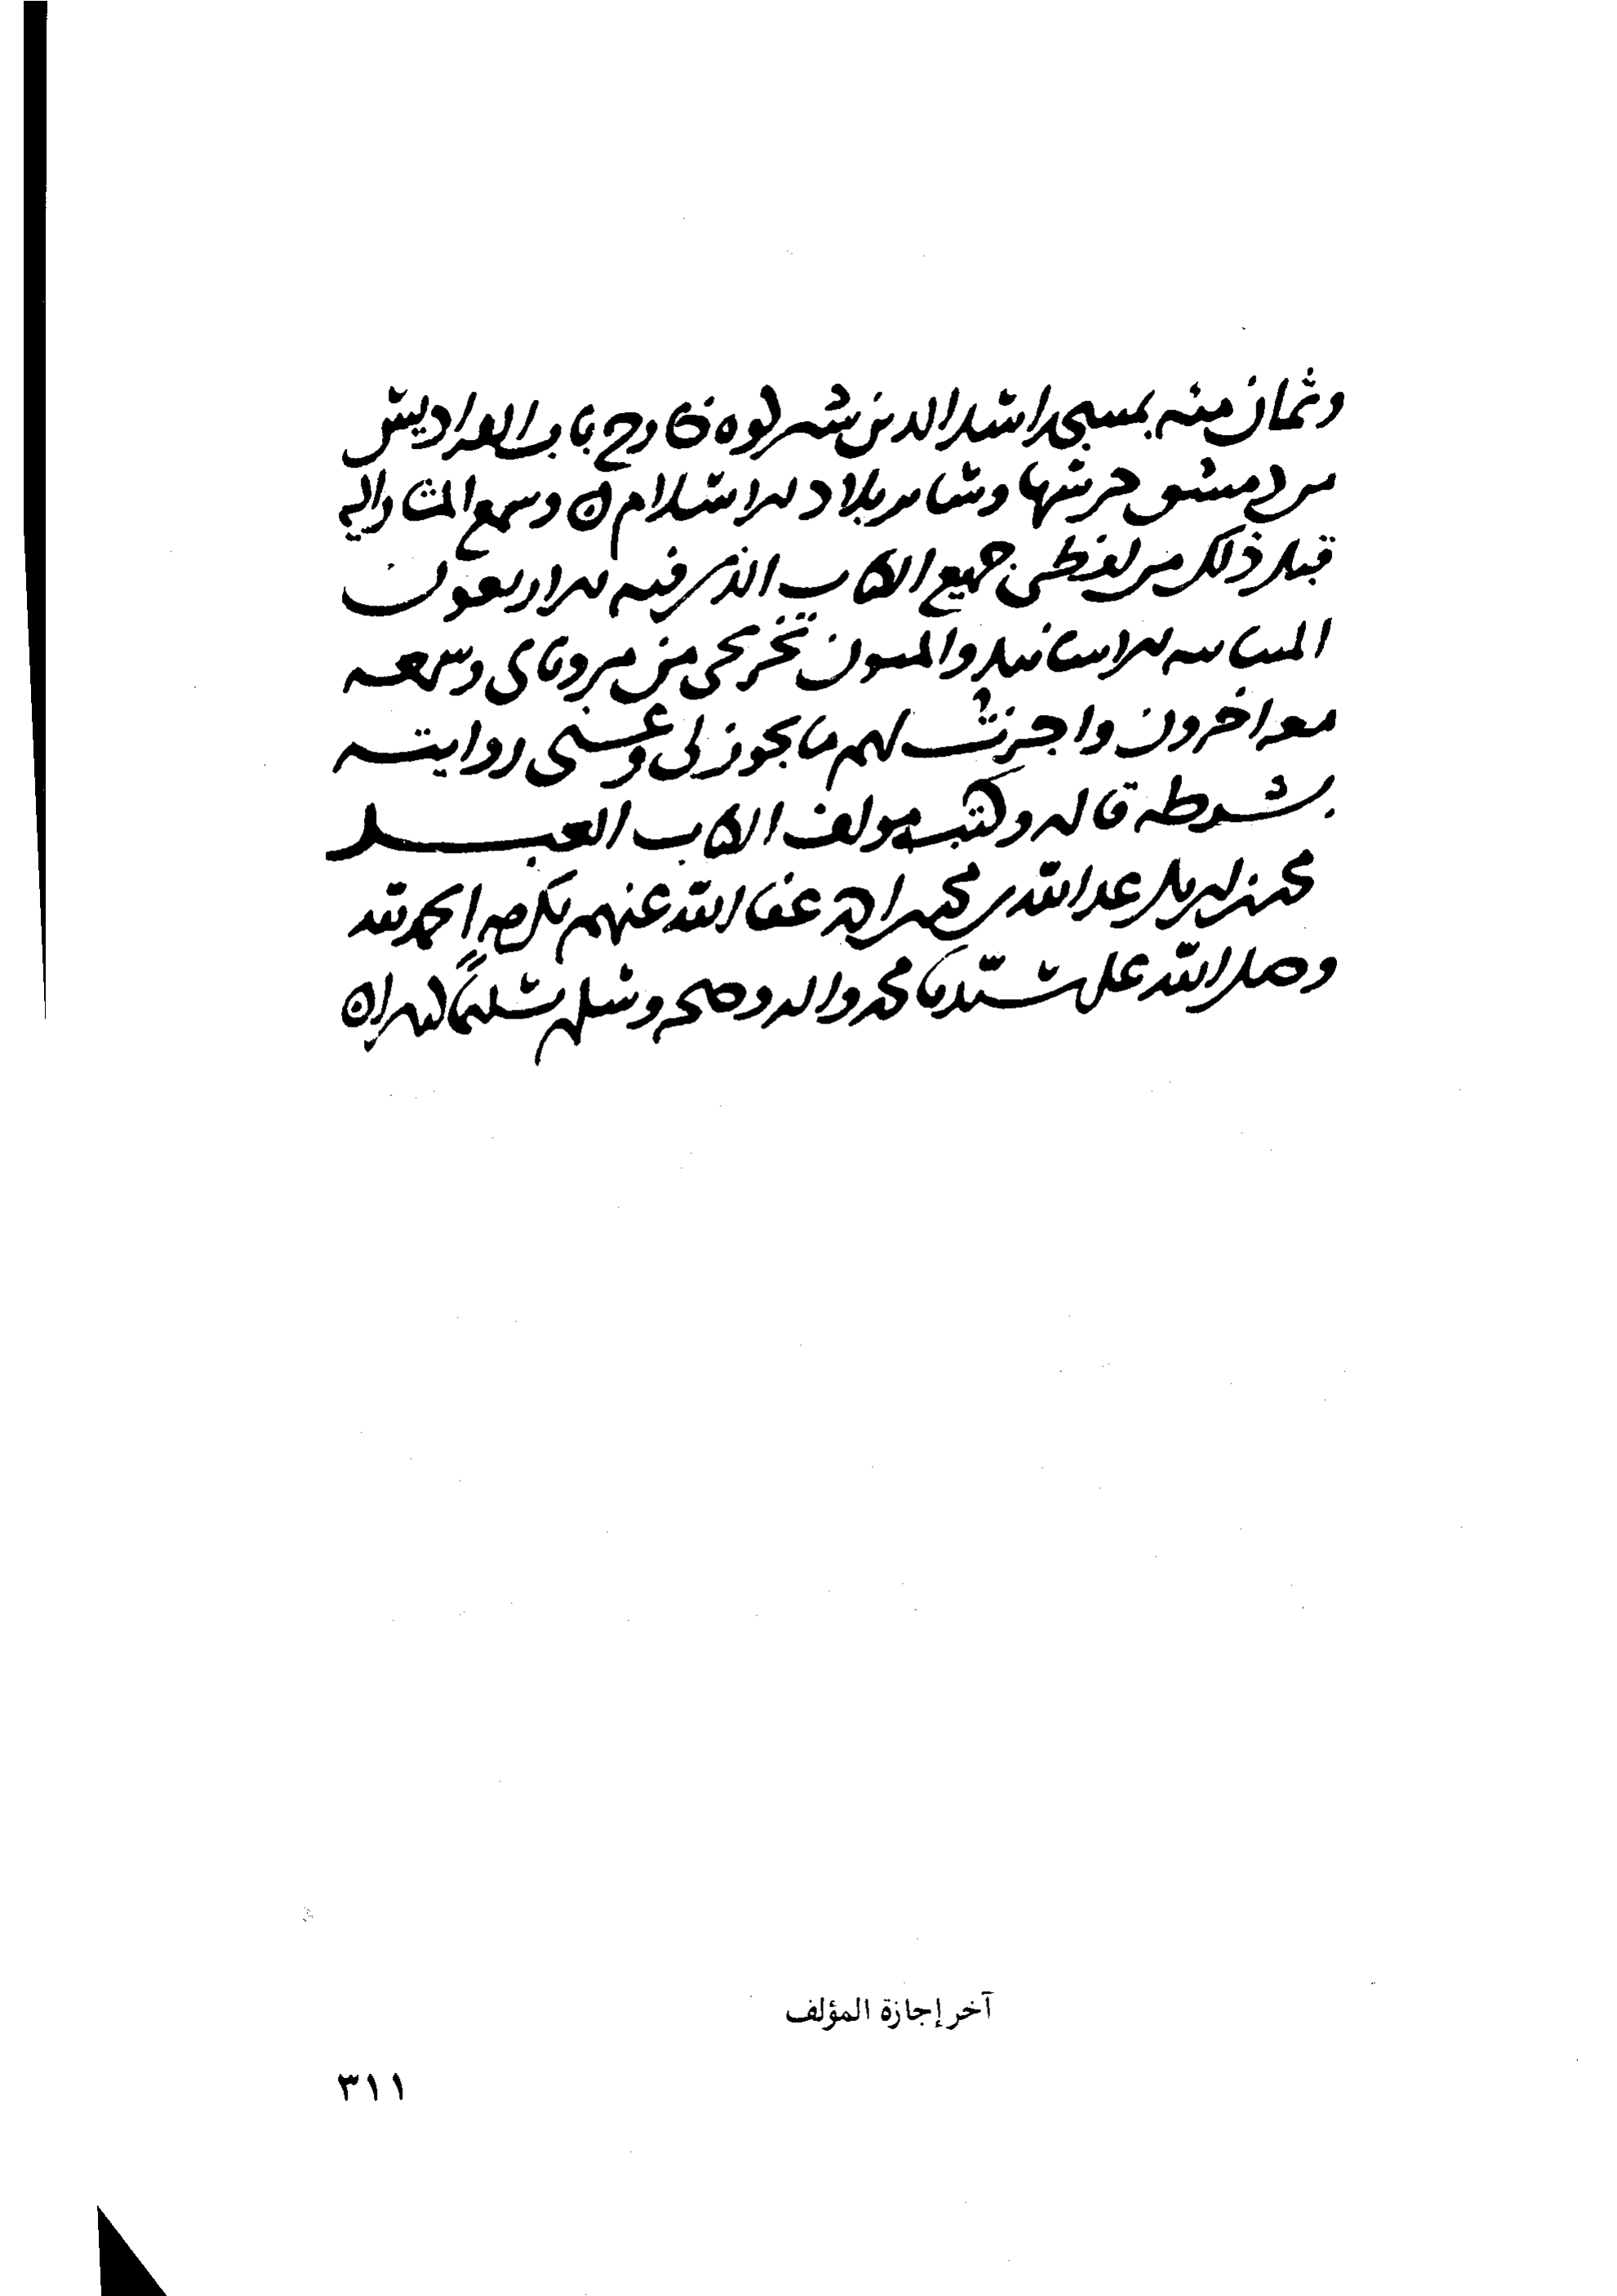 وثمان مئه بمسجد اسد الدين شيركوه خارج باب الفراديس
من دمشق حرسها وساير بلاد الاسلام ه وسمع المشار اليه
قبل ذلك من لفظي جميع الكتاب الذي فيه الاربعون
المتباينه الاسانيد والمتون تخريجي من مروياتي وسمعه
معه اخرون واجزت لهم ما يجوز لي وعني روايته
بشرطه قاله وكتبه مولف الكتاب العبد
محمد بن ابي بكر عبد الله بن محمد عفا الله عنهم بكرمه الحمد لله
وصلى الله على سيدنا محمد واله وصحبه وسلم تسليما كثيرا ه
آخر إجازة المؤلف
٣١١